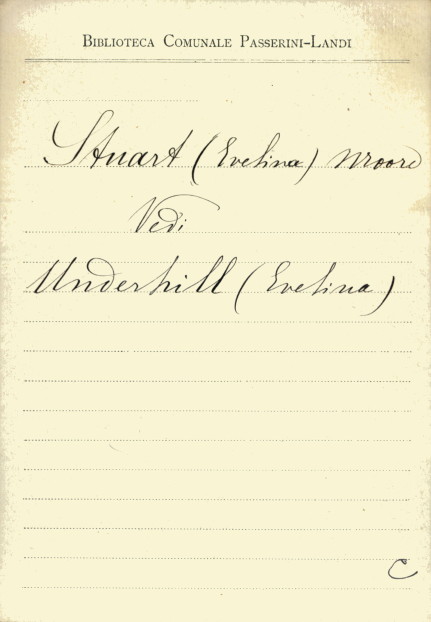 BIBLIOTECA COMUNALE PASSERINI-LANDI
Stuart (Evelina) Moore
Vedi
Underhill (Evelina)
C